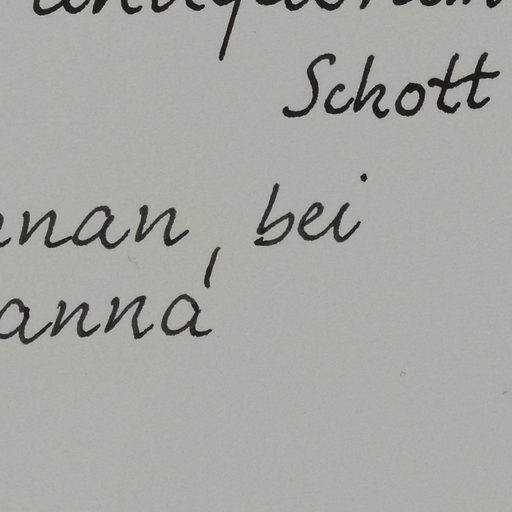 Schott
nan, bei
anna